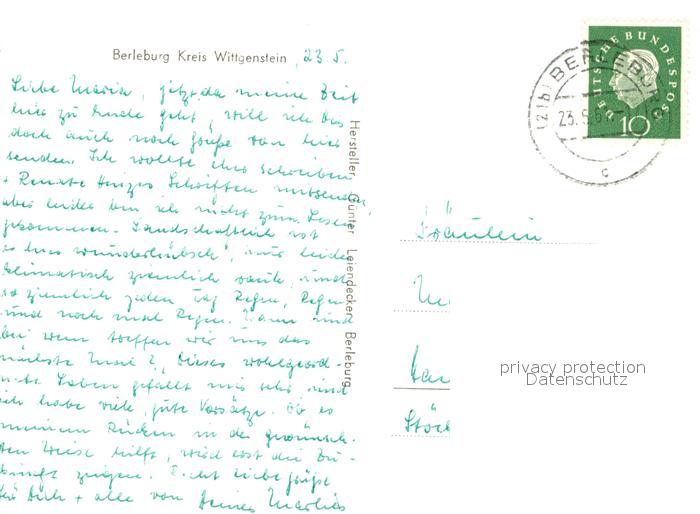 Berleburg Kreis Wittgenstein 23.5.
Liebe Maria, jetzt da meine Zeit
hier zu Ende geht, will ich Dir
doch auch noch Grüße von hier
senden. Ich wollte eher schreiben
+ Renate Schriften mitsenden,
aber leider bin ich nicht zum Lesen
gekommen. Landschaftlich ist
es hier wunderhübsch, nur leider
klimatisch ziemlich rauh, und
so ziemlich jeden Tag Regen, Regen
und noch mal Regen. Wann und
bei wem treffen wir uns das
nächste Mal?, Dieses wohlgeord-
nete Leben gefällt mir sehr, und
ich habe viele gute Vorsätze. Ob es
meinem Rücken in der gewünsch-
ten Weise hilft, wird erst die Zu-
kunft zeigen. Recht liebe Grüße
für Dich + alle von Deiner Marlies
Hersteller Günter Leiendecker, Berleburg
DEUTSCHE BUNDESPOST
10
(21b) BERLEBURG
23.5.6
c
Fräulein
Stöc
privacy protection
Datenschutz